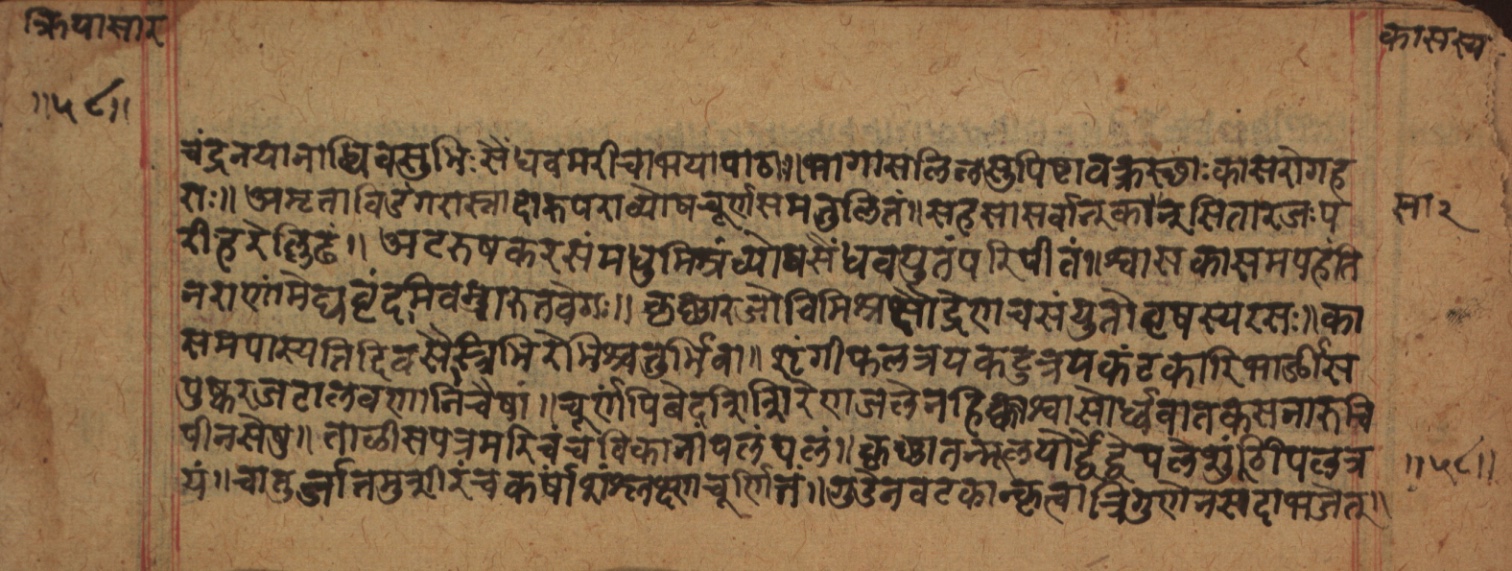 क्रियासार
॥५८॥
कासस्य
चंद्रनयानाब्धिवसुभिः सैंधवमरीचाभयापाठाः॥भागासलिलसुपिष्टावक्त्रस्थाः कासरोगह
राः॥ अमृताविडंगरास्नादारुपराव्योषचूर्णसमतुलितं॥ सहसासर्वान्कासान्सितारजःप
सार
रीहरेल्लिढं॥ अटरुषकरसंमधुमिश्रंव्योषसैंधवयुतंपरिपीतं॥श्वासकासमपहंति
नराणांमेघवृंदमिवमारुतवेगः॥ कृष्णारजोविमिश्रक्षौद्रेणचसंयुतोवृषस्यरसः॥का
समपास्यतिदिवसैस्त्रिभिरेभिश्चतुर्भिर्वा॥ शृंगीफलत्रयकटुत्रयकंटकारिभार्ङीस
पुष्करजटालवणानिचैषां॥चूर्णंपिबेदशिशिरेणजलेनहिक्काश्वासोर्ध्ववातकसनारुचि
पीनसेषु॥ तालीसपत्रमरिचचविकानांपलंपलं॥ कृष्णातन्मूलयोर्द्वेद्वेपलेशुंठीपलत्र
॥५८॥
यं॥ चातुर्जातमुशीरंचकर्षांशंश्लक्ष्णचूर्णितं॥ गुडेनवटकान्कृत्वात्रिगुणेनसदाभजेत्॥